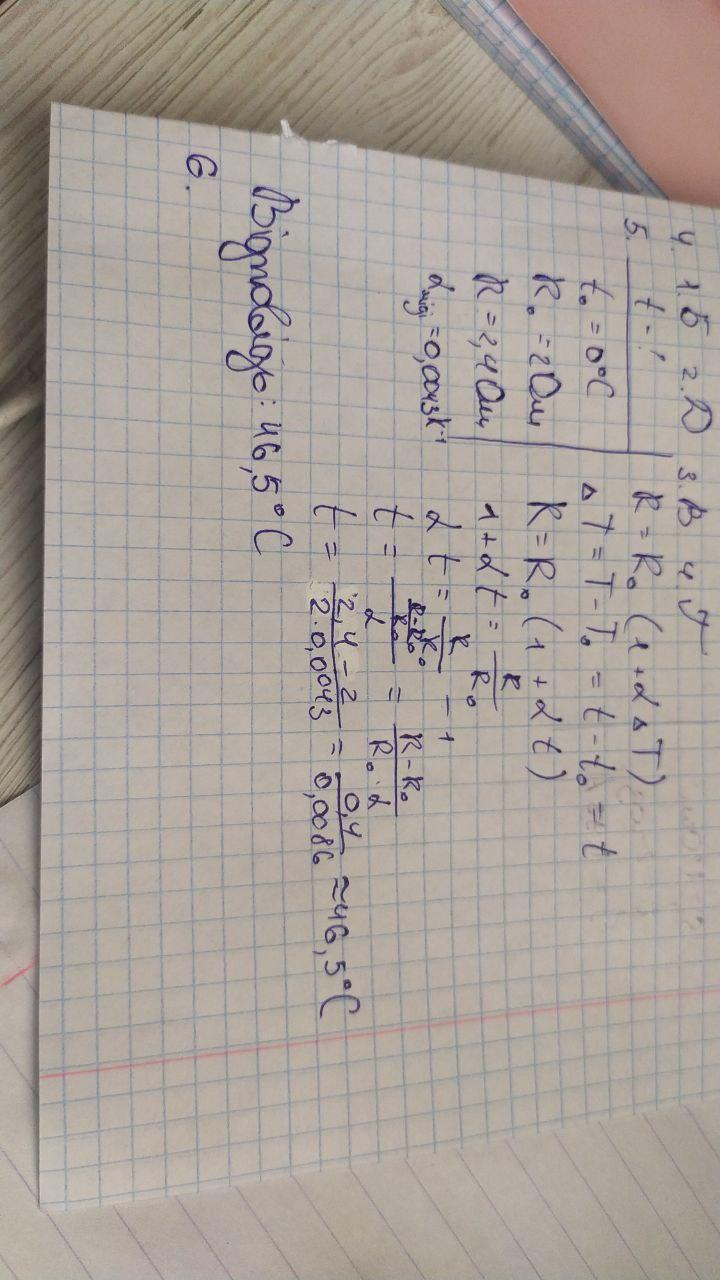 4. 1.Б 2.D 3.В 4 Г
5.
t - ?
t₀ = 0°C
R₀ = 2 Ом
R = 2,4 Ом
α міді = 0,0043 К⁻¹
R = R₀ (1 + α ΔT)
ΔT = T - T₀ = t - t₀ = t
R = R₀ (1 + α t)
1 + α t = R/R₀
α t = R/R₀ - 1
t = ((R-R₀)/R₀)/α = (R-R₀)/(R₀·α)
t = (2,4-2)/(2·0,0043) = 0,4/0,0086 ≈ 46,5°C
Відповідь: 46,5°C
6.